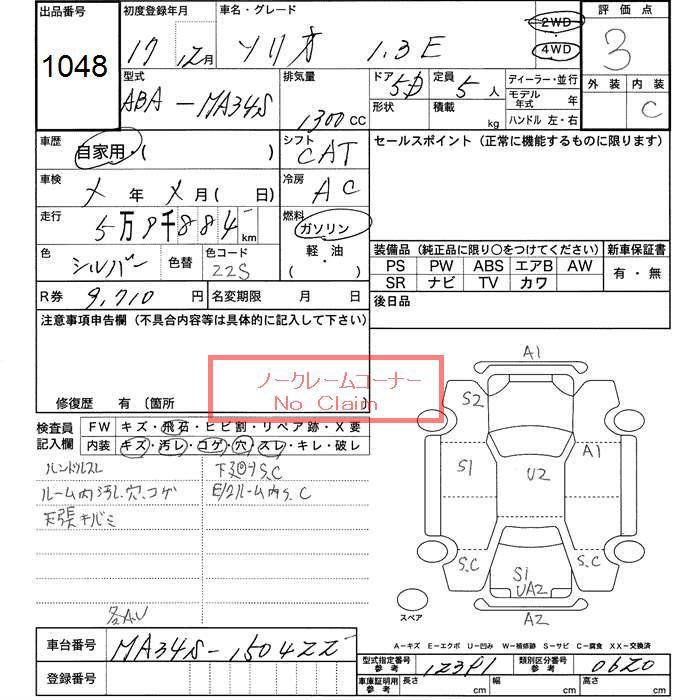 出品番号
1048
初度登録年月
17 12月
車名・グレード
ソリオ 1.3E
2WD
4WD
評価点
3
外装 内装
C
型式
ABA-MA34S
排気量
1300 cc
ドア 5D
形状
定員 5 人
積載 kg
ディーラー・並行
モデル年式 年
ハンドル 左・右
車歴
自家用・( )
シフト
CAT
セールスポイント (正常に機能するものに限ります)
車検
X 年 X 月 ( 日)
冷房
AC
走行
5万9千884 km
燃料
ガソリン
軽・油
( ・ )
色
シルバー
色替
色コード
22S
装備品 (純正品に限り〇をつけてください)
新車保証書
PS PW ABS エアB AW
SR ナビ TV カワ
有・無
R券 9,710 円
名変期限 月 日
後日品
注意事項申告欄 (不具合内容等は具体的に記入して下さい)
修復歴 有 (箇所
ノークレームコーナー
No Claim
検査員記入欄
FW キズ・飛石・ヒビ割・リペア跡・X要
内装 キズ・汚レ・コゲ・穴・スレ・キレ・破レ
ハンドルスレ
ルーム内汚レ、穴、コゲ
天張キバミ
下廻りS.C
E/gルーム内S.C
各A.U
A1
S2
S1
U2
A1
S.C
S.C
S1
UA2
A2
スペア
A-キズ E-エクボ U-凹み W-補修跡 S-サビ C-腐食 XX-交換済
車台番号
MA34S-150422
登録番号
型式指定番号 参考
12391
類別区分番号 参考
0620
車庫証明用 参考
長さ cm
幅 cm
高さ cm